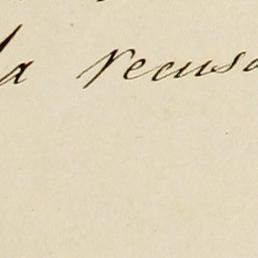 la recusa